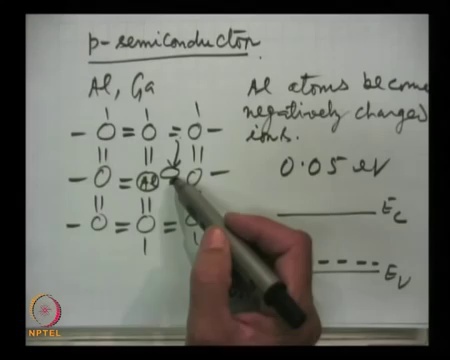 p-semiconductor.
Al, Ga
Al atoms become
negatively charged
ions.
Al
0.05 eV
Ec
Ev
NPTEL